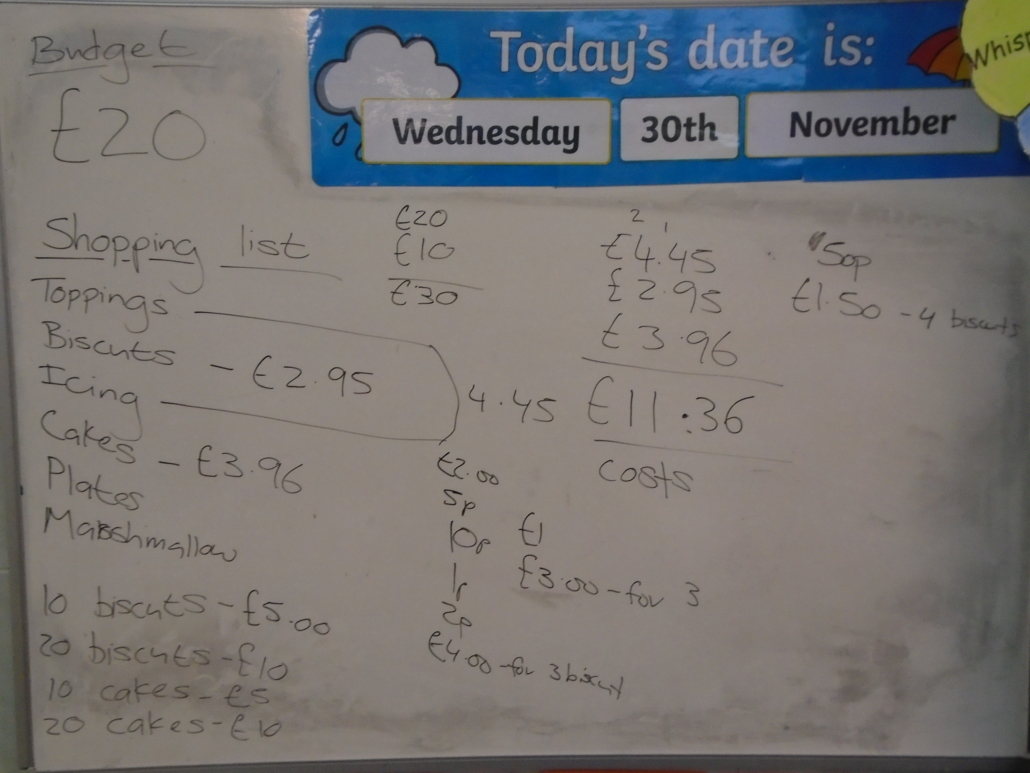 Budget
£20
Today's date is:
Wednesday 30th November
Whisp
Shopping list
Toppings
Biscuts - £2.95
Icing
4.45
Cakes - £3.96
Plates
Marshmallow
10 biscuts - £5.00
20 biscuts - £10
10 cakes - £5
20 cakes - £10
£20
£10
£30
2 1
£4.45
£2.95
£3.96
£11.36
costs
50p
£1.50 - 4 biscuts
£2.00
5p
10p
1p
2p
£4.00 - for 3 biscut
£1
£3.00 - for 3